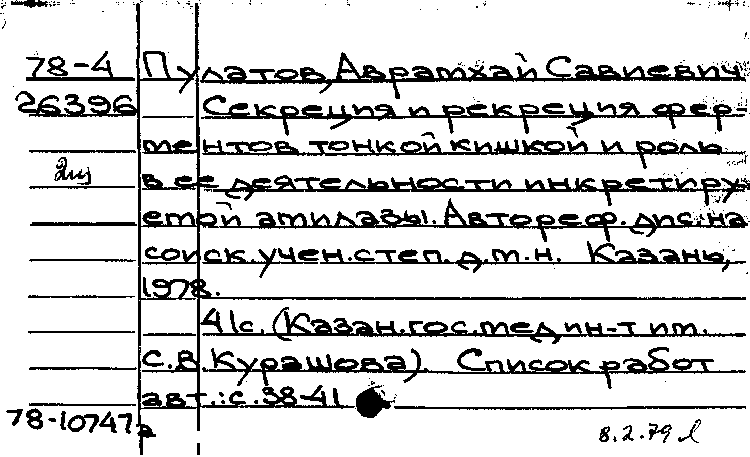 78-4 Пулатов, Аврамхай Савиевич
26396 Секреция и рекреция фер-
ментов тонкой кишкой и роль
2из в ее деятельности инкретиру-
емой амилазы. Автореф. дис. на
соиск. учен. степ. д.м.н. Казань,
1978.
41с. (Казан. гос. мед ин-т им.
С.В. Курашова). Список работ
авт.: с. 38-41
78-10747а
8.2.79